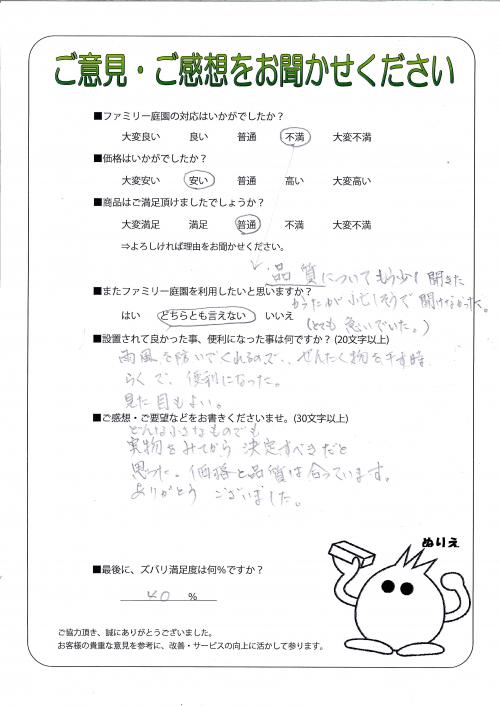 ご意見・ご感想をお聞かせください
■ファミリー庭園の対応はいかがでしたか？
大変良い 良い 普通 不満 大変不満
■価格はいかがでしたか？
大変安い 安い 普通 高い 大変高い
■商品はご満足頂けましたでしょうか？
大変満足 満足 普通 不満 大変不満
⇒よろしければ理由をお聞かせください。
品質についてもう少し聞きた
かったが忙しそうで聞けなかった。
(とても急いでいた。)
■またファミリー庭園を利用したいと思いますか？
はい どちらとも言えない いいえ
■設置されて良かった事、便利になった事は何ですか？(20文字以上)
雨風を防いでくれるので、ぜんたく物を干す時、
らくで、便利になった。
見た目もよい。
■ご感想・ご要望などをお書きくださいませ。(30文字以上)
どんな小さなものでも
実物をみてから決定すべきだと
思った。価格と品質は合っています。
ありがとうございました。
ぬりえ
■最後に、ズバリ満足度は何%ですか？
40 %
ご協力頂き、誠にありがとうございました。
お客様の貴重な意見を参考に、改善・サービスの向上に活かして参ります。